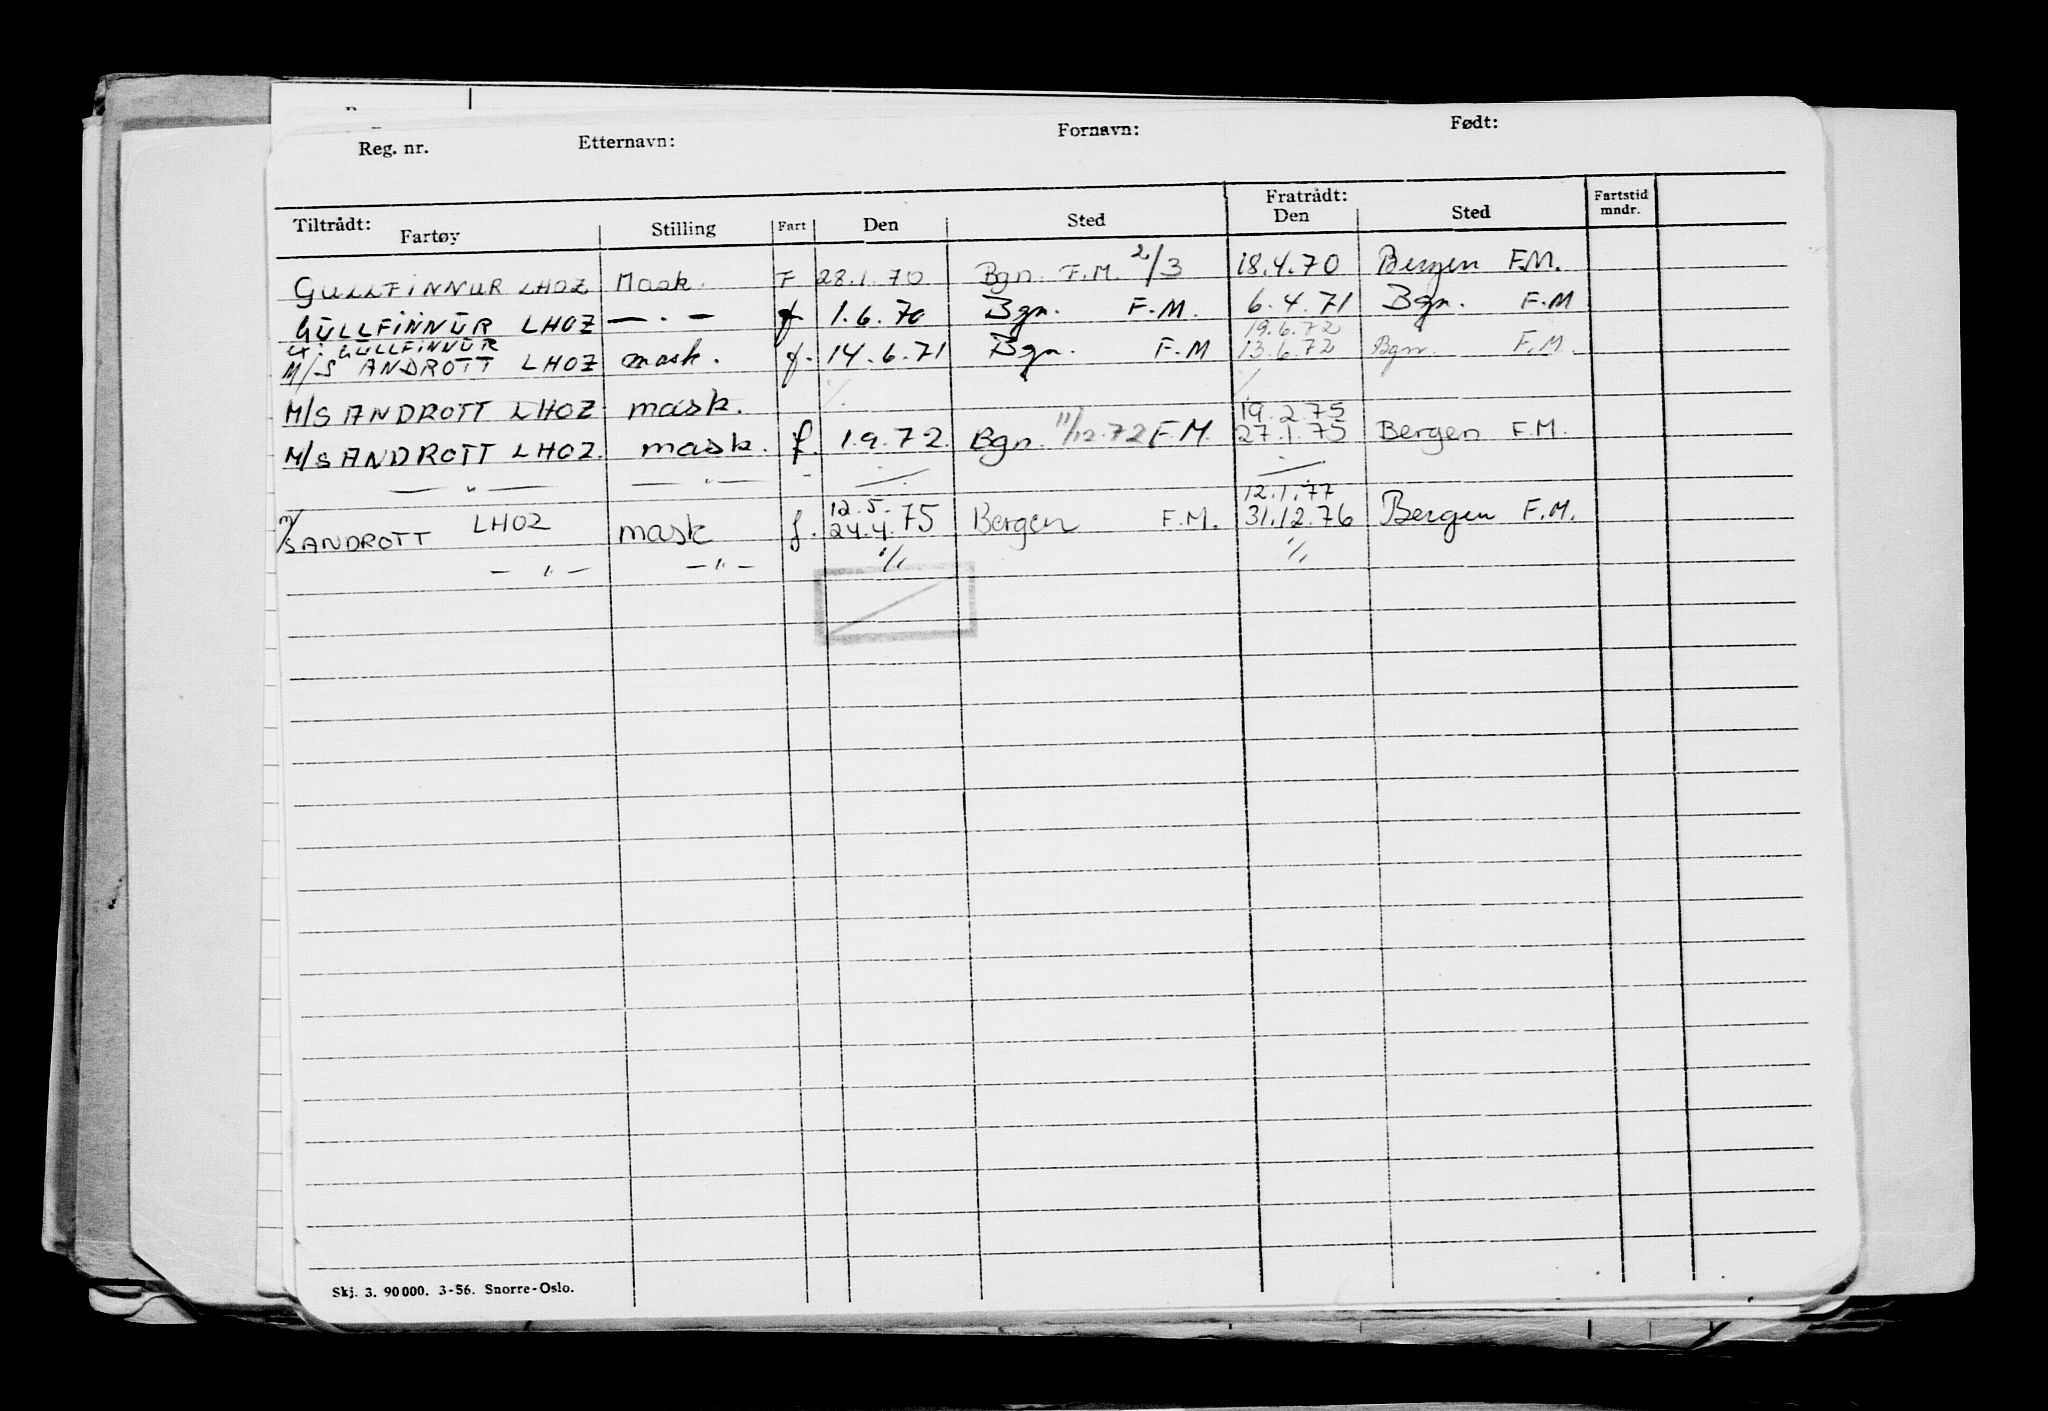 Reg. nr. Etternavn: Fornavn: Født:
Tiltrådt: Fratrådt: Fartstid
Fartøy Stilling Fart Den Sted Den Sted mndr.
GULLFINNUR LHOZ Mask. F 28.1.70 Bgn. F.M. 2/3 18.4.70 Bergen F.M.
GULLFINNUR LHOZ — . — f 1.6.70 Bgn. F.M. 6.4.71 Bgn. F.M
ex. GULLFINNUR 19.6.72
M/S ANDROTT LHOZ mask. f. 14.6.71 Bgn. F.M 13.6.72 Bgn. F.M.
M/S ANDROTT LHOZ mask. ·/. ·/.
19.2.75
M/S ANDROTT LHOZ. mask. f. 1.9.72. Bgn. 11/12.72 F.M. 27.1.75 Bergen F.M.
— " — — " — - ·/. ·/.
12.5. 12.1.77
M/S ANDROTT LHOZ mask f. 24.4.75 Bergen F.M. 31.12.76 Bergen F.M.
— " — — " — ·/. ·/.
Skj. 3. 90000. 3-56. Snorre-Oslo.